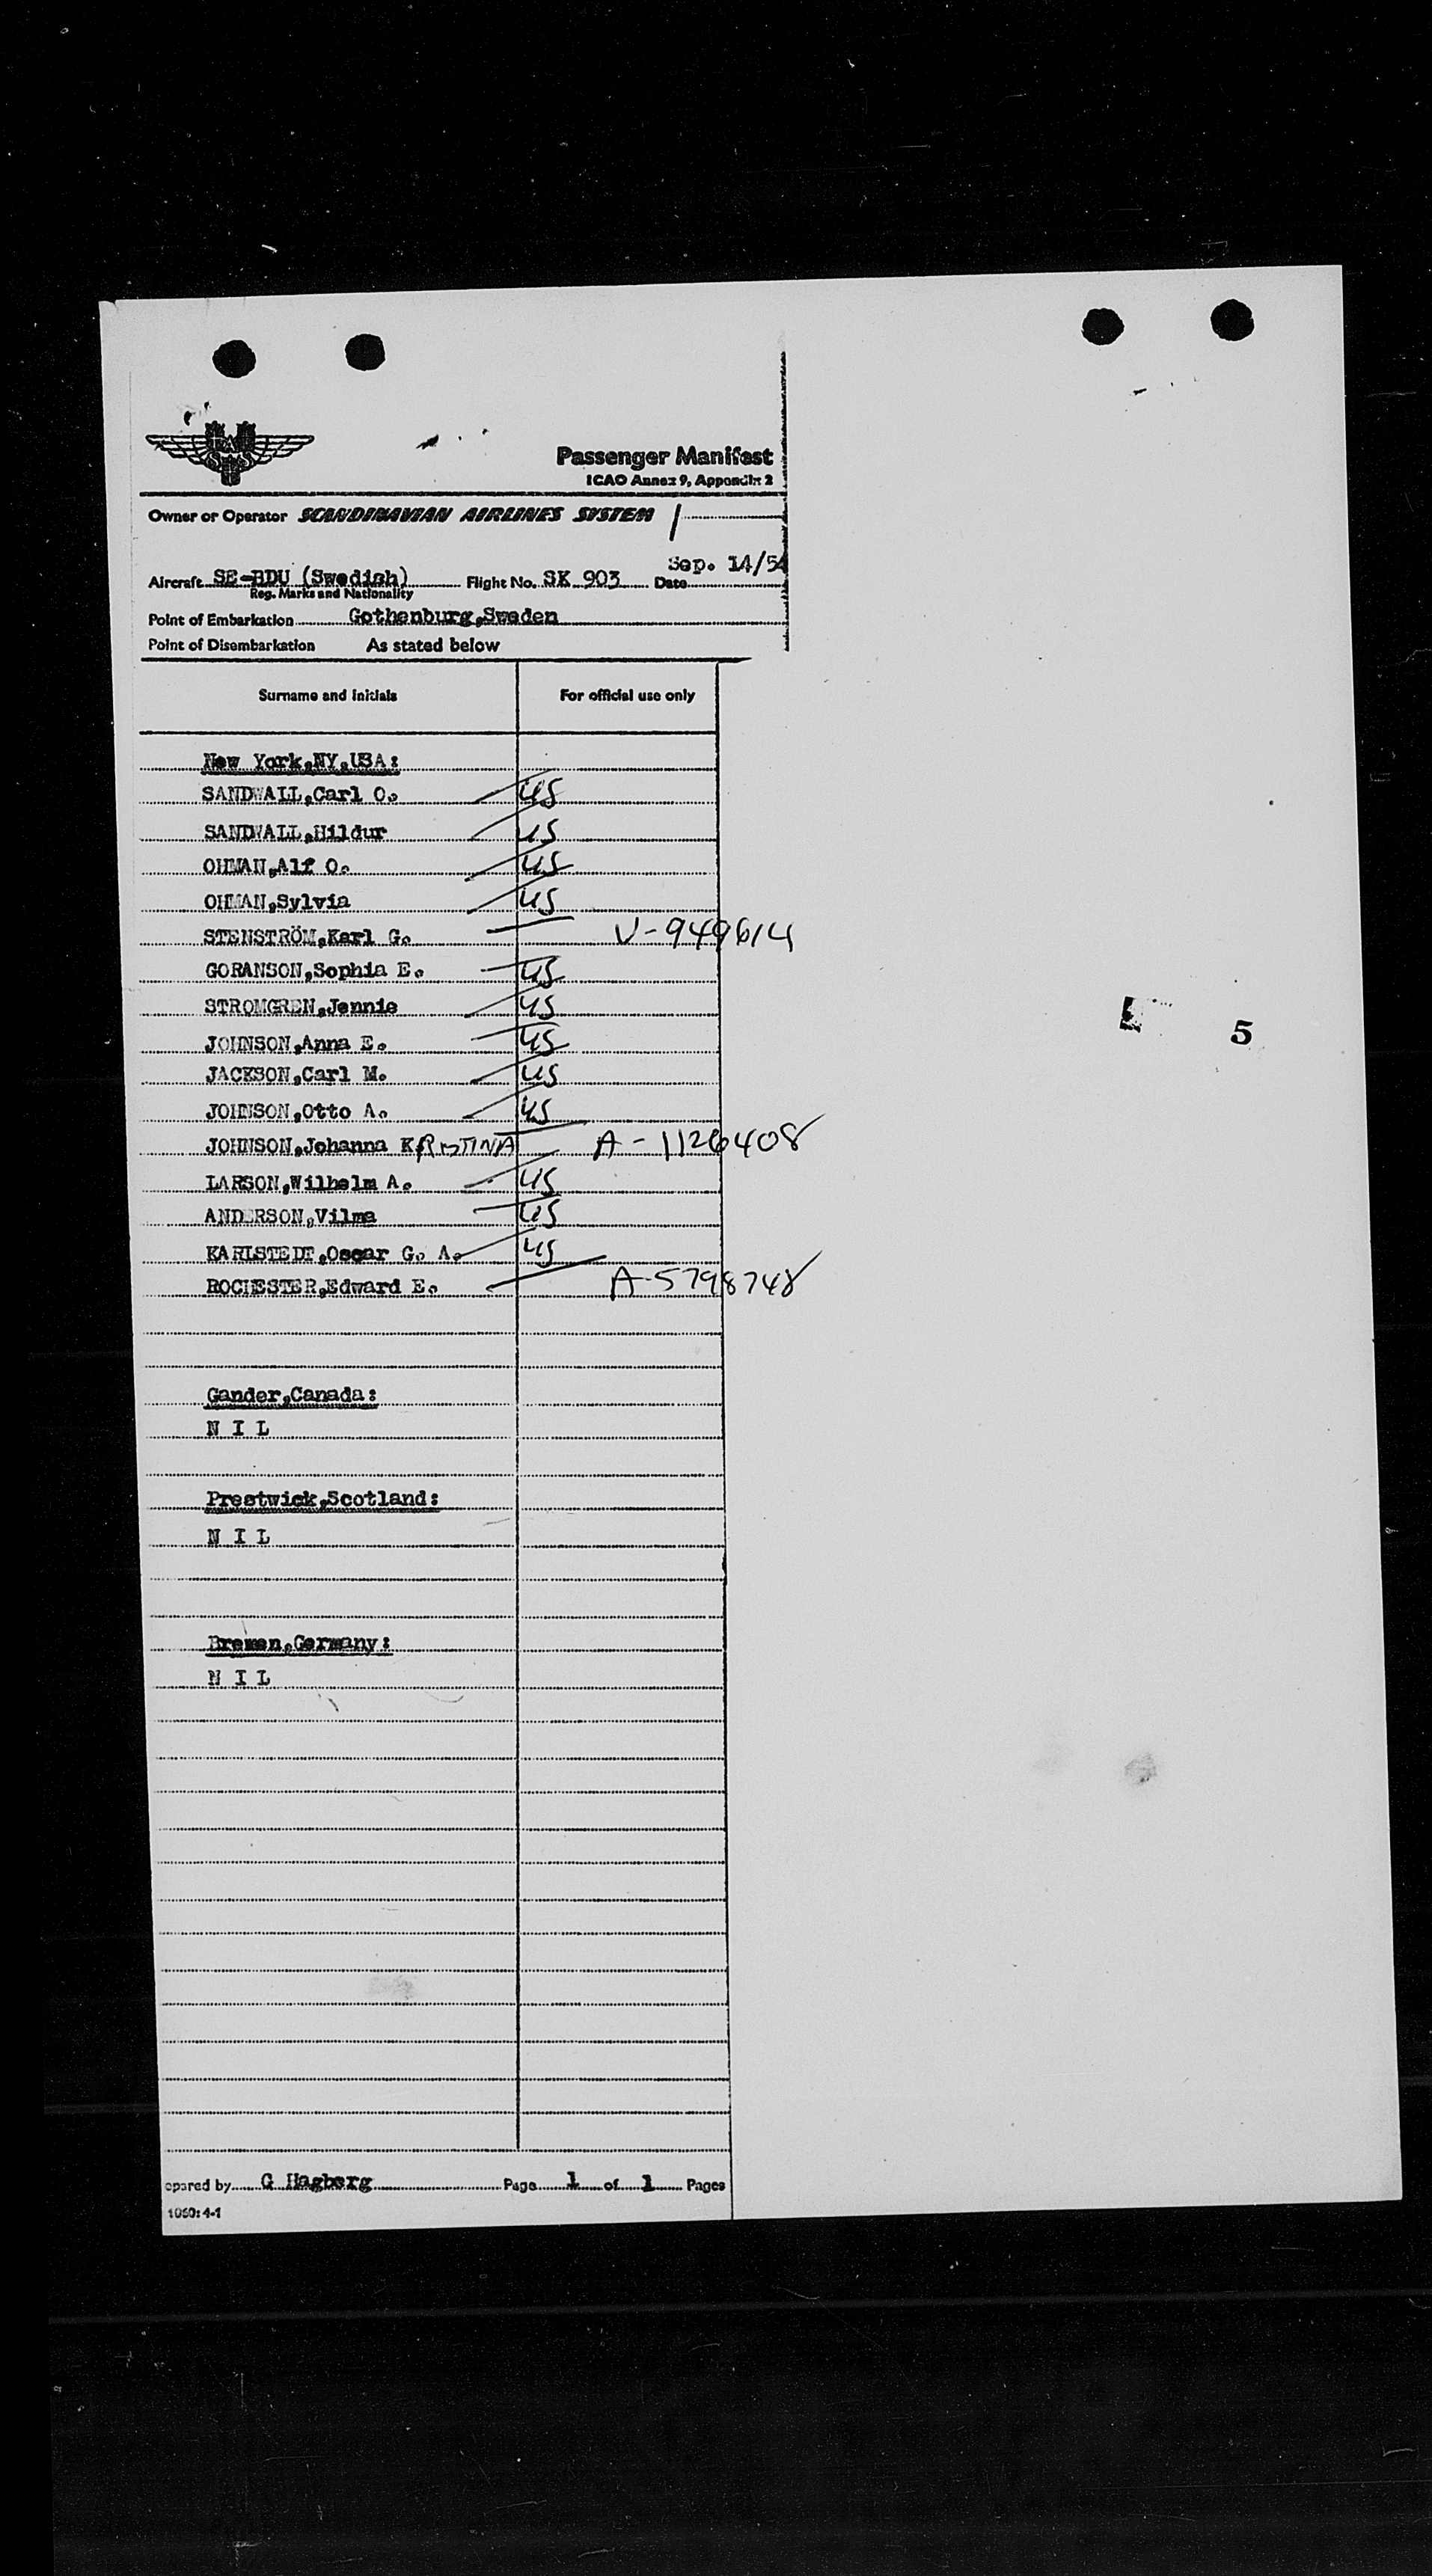 Passenger Manifest
ICAO Annex 9, Appendix 2
Owner or Operator SCANDINAVIAN AIRLINES SYSTEM
Sep. 14/54
Aircraft SE-BDU (Swedish) Flight No. SK 903 Date
Reg. Marks and Nationality
Point of Embarkation Gothenburg,Sweden
Point of Disembarkation As stated below
Surname and initials For official use only
New York,NY,USA:
SANDWALL,Carl O. US
SANDWALL,Hildur US
OHMAN,Alf O. US
OHMAN,Sylvia US
STENSTRÖM,Karl G. V-949614
GORANSON,Sophia E. US
STROMGREN,Jennie US
5
JOHNSON,Anna E. US
JACKSON,Carl M. US
JOHNSON,Otto A. US
JOHNSON,Johanna KRISTINA A-1126408
LARSON,Wilhelm A. US
ANDERSON,Vilma US
KARLSTEDT,Oscar G. A. US
ROCHESTER,Edward E. A-5798748
Gander,Canada:
N I L
Prestwick,Scotland:
N I L
Bremen,Germany:
N I L
epared by G Hagberg Page 1 of 1 Pages
1060:4-1